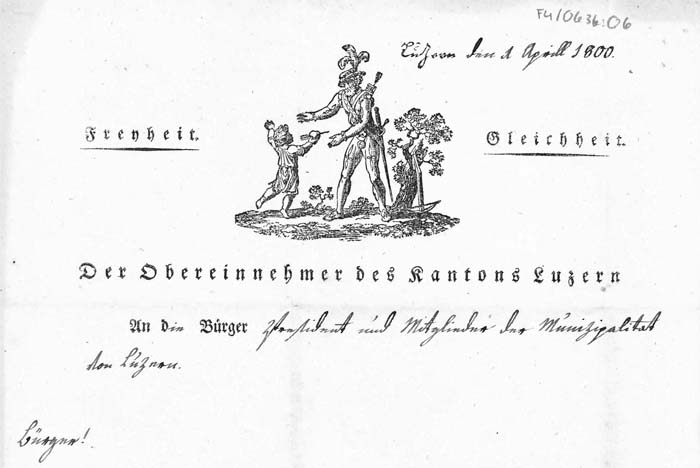 F4/0636:06
Luzern den 1 Aprill 1800.
Freyheit.
Gleichheit.
Der Obereinnehmer des Kantons Luzern
An die Bürger President und Mitglieder der Munizipalitat
von Luzern.
Bürger!